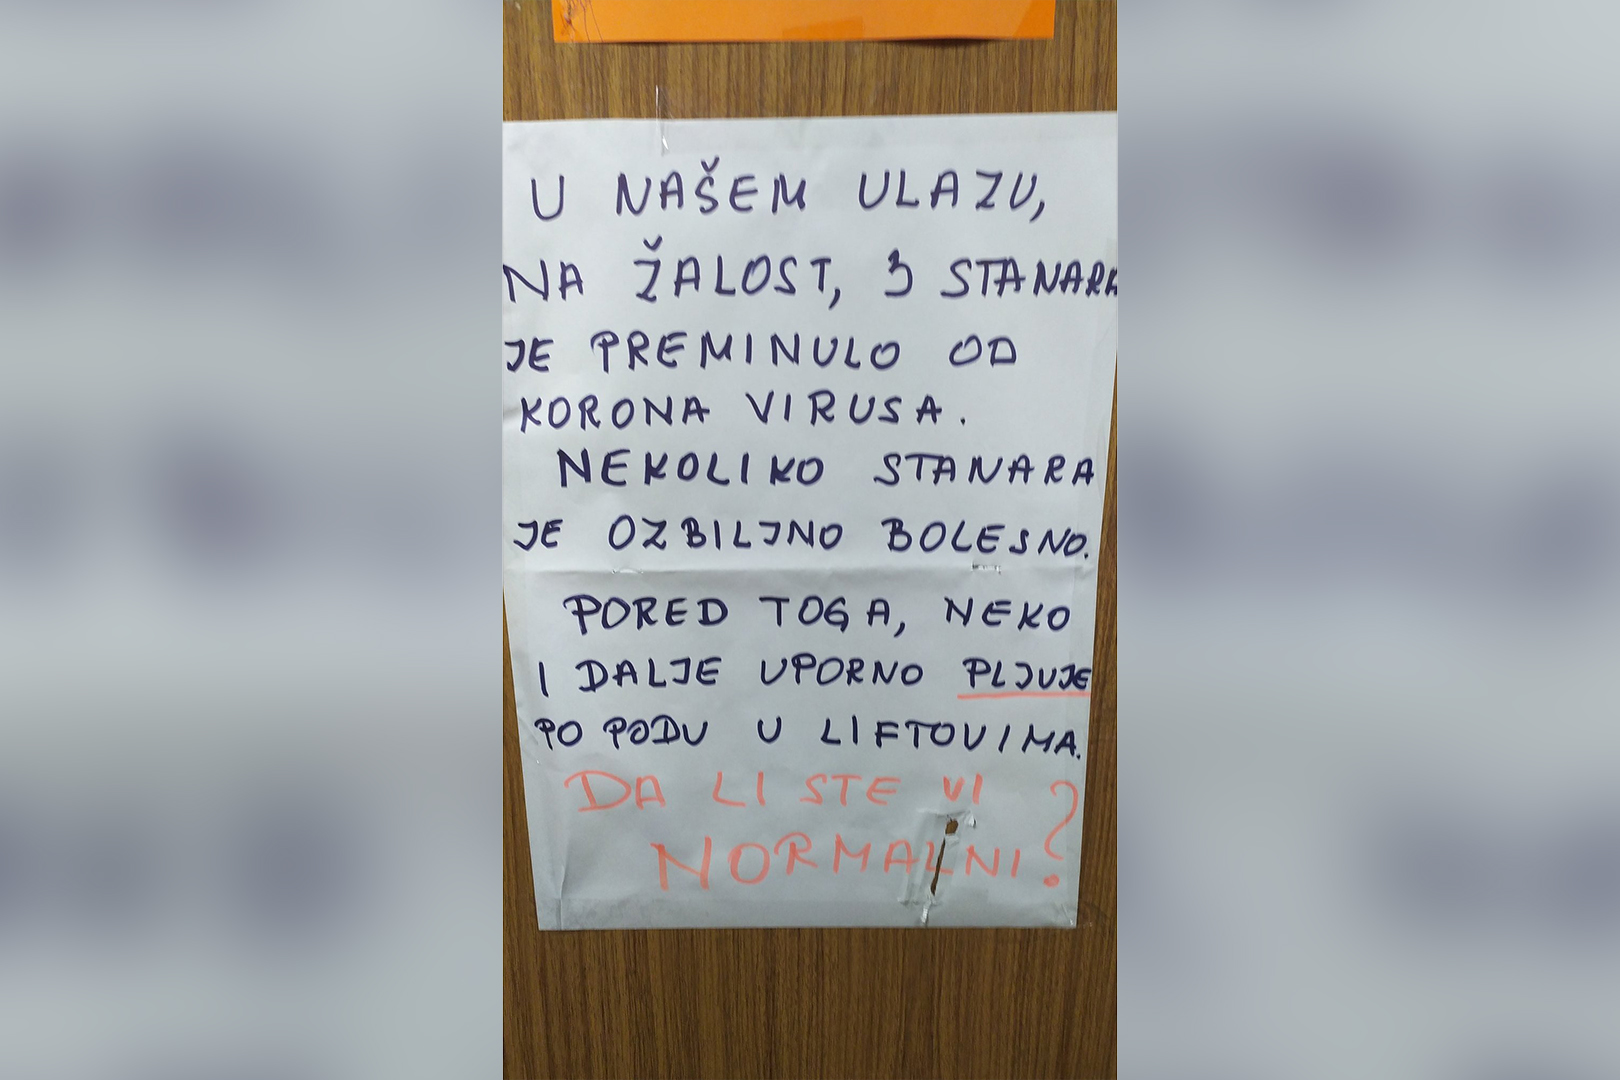 U NAŠEM ULAZU,
NA ŽALOST, 3 STANARA
JE PREMINULO OD
KORONA VIRUSA.
NEKOLIKO STANARA
JE OZBILJNO BOLESNO.
PORED TOGA, NEKO
I DALJE UPORNO PLJUJE
PO PODU U LIFTOVIMA.
DA LI STE VI
NORMALNI?